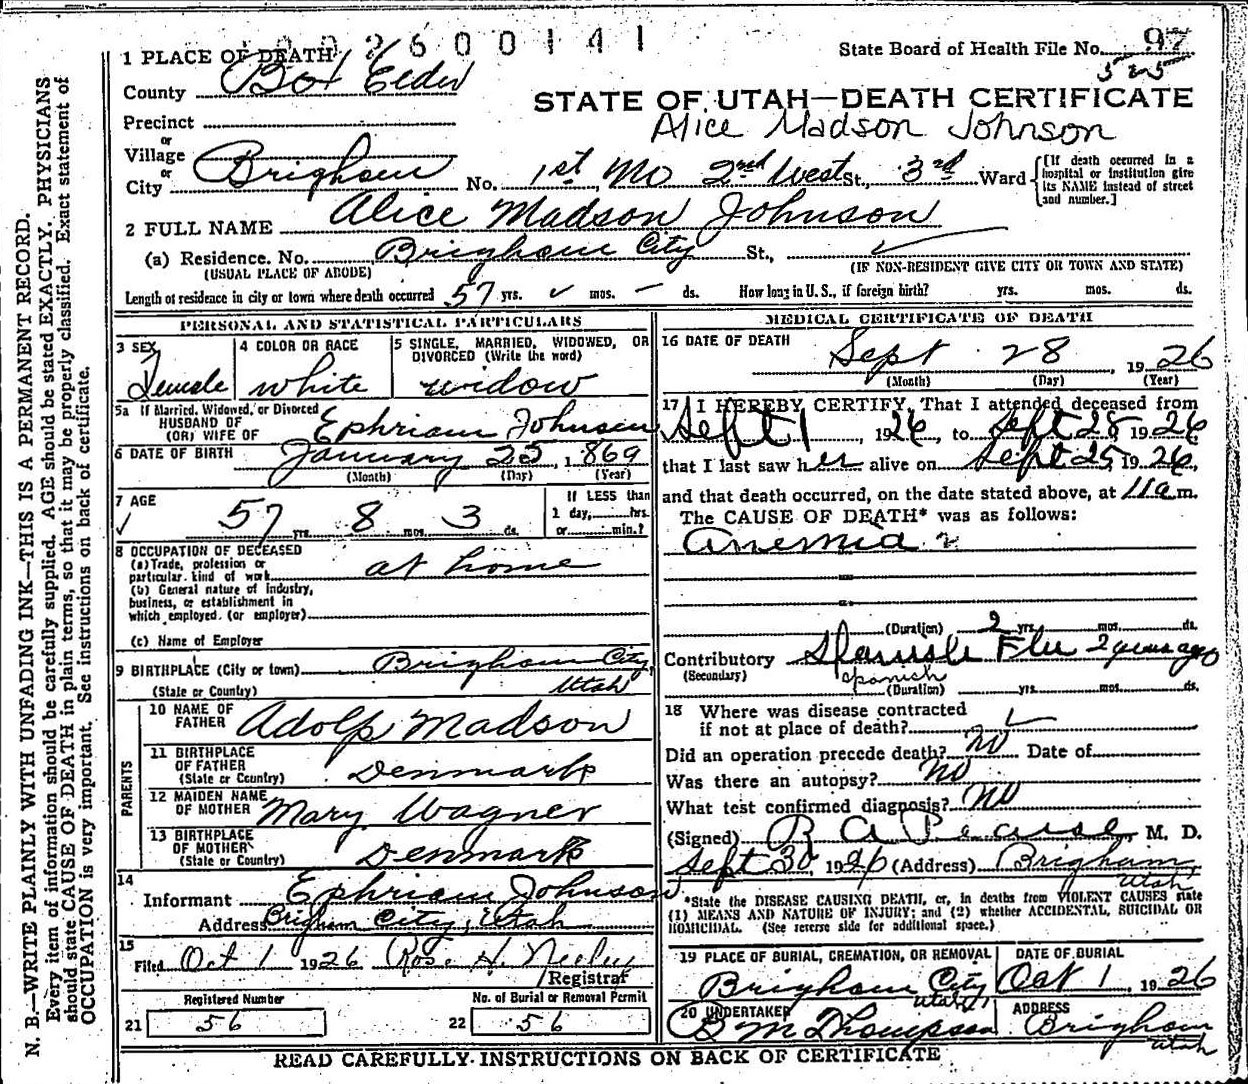 002600141
1 PLACE OF DEATH
State Board of Health File No. 97
525
County Box Elder
STATE OF UTAH—DEATH CERTIFICATE
Alice Madson Johnson
Precinct
or
Village
or
City Brigham No. 1st No 2nd West St., 3rd Ward
[If death occurred in a hospital or institution give its NAME instead of street and number.]
2 FULL NAME Alice Madson Johnson
(a) Residence. No. Brigham City St., ✓
(USUAL PLACE OF ABODE) (IF NON-RESIDENT GIVE CITY OR TOWN AND STATE)
Length of residence in city or town where death occurred 57 yrs. ✓ mos. — ds. How long in U.S., if foreign birth? yrs. mos. ds.
PERSONAL AND STATISTICAL PARTICULARS
3 SEX
Female
4 COLOR OR RACE
white
5 SINGLE, MARRIED, WIDOWED, OR DIVORCED (Write the word)
widow
5a If Married, Widowed, or Divorced
HUSBAND OF
(OR) WIFE OF Ephriam Johnson
6 DATE OF BIRTH January 25, 1869
(Month) (Day) (Year)
7 AGE
✓ 57 yrs. 8 mos. 3 ds.
If LESS than
1 day,......hrs.
or......min.?
8 OCCUPATION OF DECEASED
(a) Trade, profession or
particular kind of work at home
(b) General nature of industry,
business, or establishment in
which employed (or employer)
(c) Name of Employer
9 BIRTHPLACE (City or town) Brigham City,
(State or Country) Utah
PARENTS
10 NAME OF
FATHER Adolf Madson
11 BIRTHPLACE
OF FATHER
(State or Country) Denmark
12 MAIDEN NAME
OF MOTHER Mary Wagner
13 BIRTHPLACE
OF MOTHER
(State or Country) Denmark
14
Informant Ephriam Johnson
Address Brigham City, Utah
15
Filed Oct 1 1926 Rose H. Neeley
Registrar
Registered Number
21 56
No. of Burial or Removal Permit
22 56
MEDICAL CERTIFICATE OF DEATH
16 DATE OF DEATH
Sept 28, 1926
(Month) (Day) (Year)
17 I HEREBY CERTIFY, That I attended deceased from
Sept 1, 1926, to Sept 28 1926
that I last saw her alive on Sept 25, 1926,
and that death occurred, on the date stated above, at 11 a m.
The CAUSE OF DEATH* was as follows:
Anemia
(Duration) 2 yrs. mos. ds.
Contributory Spanish Flu 2 years ago
(Secondary) Spanish
(Duration) yrs. mos. ds.
18 Where was disease contracted
if not at place of death? ✓
Did an operation precede death? No Date of
Was there an autopsy? No
What test confirmed diagnosis? No
(Signed) R A Pearse M. D.
Sept 30, 1926 (Address) Brigham
Utah
*State the DISEASE CAUSING DEATH, or, in deaths from VIOLENT CAUSES state
(1) MEANS AND NATURE OF INJURY; and (2) whether ACCIDENTAL, SUICIDAL OR
HOMICIDAL. (See reverse side for additional space.)
19 PLACE OF BURIAL, CREMATION, OR REMOVAL
Brigham City
Utah
DATE OF BURIAL
Oct 1, 1926
20 UNDERTAKER
B M Thompson
ADDRESS
Brigham
Utah
READ CAREFULLY INSTRUCTIONS ON BACK OF CERTIFICATE
N. B.—WRITE PLAINLY WITH UNFADING INK—THIS IS A PERMANENT RECORD.
Every item of information should be carefully supplied. AGE should be stated EXACTLY. PHYSICIANS
should state CAUSE OF DEATH in plain terms, so that it may be properly classified. Exact statement of
OCCUPATION is very important. See instructions on back of certificate.